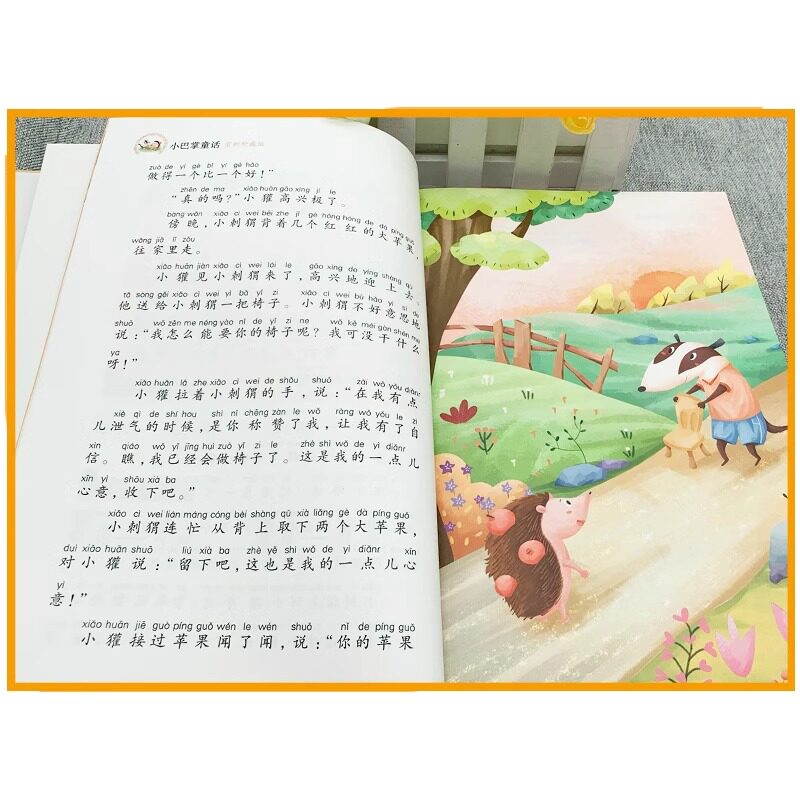 小巴掌童话
zuò de yí gè bǐ yí gè hǎo
做得一个比一个好！”
zhēn de ma xiǎo huān gāo xìng jí le
“真的吗？”小獾高兴极了。
bàng wǎn xiǎo cì wei bēi zhe jǐ gè hóng hóng de dà píng guǒ
傍晚，小刺猬背着几个红红的大苹果，
wǎng jiā lǐ zǒu
往家里走。
xiǎo huān jiàn xiǎo cì wei lái le gāo xìng de yíng shàng qù
小獾见小刺猬来了，高兴地迎上去。
tā sòng gěi xiǎo cì wei yì bǎ yǐ zi xiǎo cì wei bù hǎo yì si de
他送给小刺猬一把椅子。小刺猬不好意思地
shuō wǒ zěn me néng yào nǐ de yǐ zi ne wǒ kě méi gàn shén me
说：“我怎么能要你的椅子呢？我可没干什么
ya
呀！”
xiǎo huān lā zhe xiǎo cì wei de shǒu shuō zài wǒ yǒu diǎnr
小獾拉着小刺猬的手，说：“在我有点
xiè qì de shí hou shì nǐ chēng zàn le wǒ ràng wǒ yǒu le zì
儿泄气的时候，是你称赞了我，让我有了自
xìn qiáo wǒ yǐ jīng huì zuò yǐ zi le zhè shì wǒ de yì diǎnr
信。瞧，我已经会做椅子了。这是我的一点儿
xīn yì shōu xià ba
心意，收下吧。”
xiǎo cì wei lián máng cóng bèi shàng qǔ xià liǎng gè dà píng guǒ
小刺猬连忙从背上取下两个大苹果，
duì xiǎo huān shuō liú xià ba zhè yě shì wǒ de yì diǎnr xīn
对小獾说：“留下吧，这也是我的一点儿心
yì
意！”
xiǎo huān jiē guò píng guǒ wén le wén shuō nǐ de píng guǒ
小獾接过苹果闻了闻，说：“你的苹果